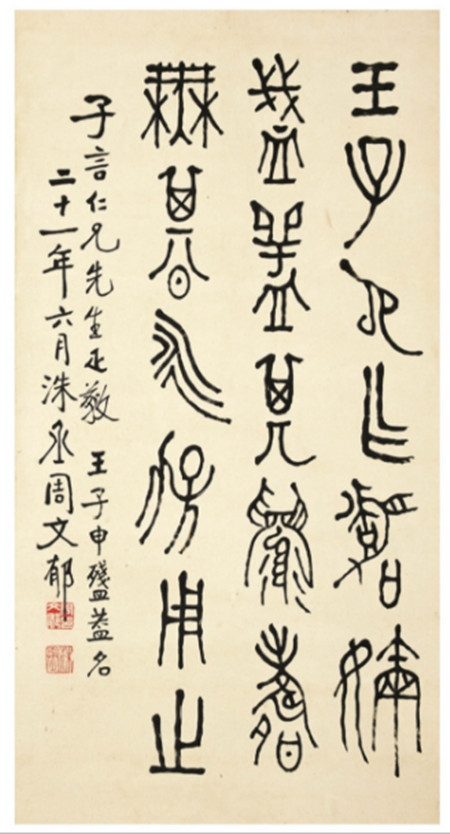 王子申乍嘉嬭
盞盂其眉壽
無期永保用之
子言仁兄先生正教 王子申盞蓋名
二十一年六月洙丞周文郁